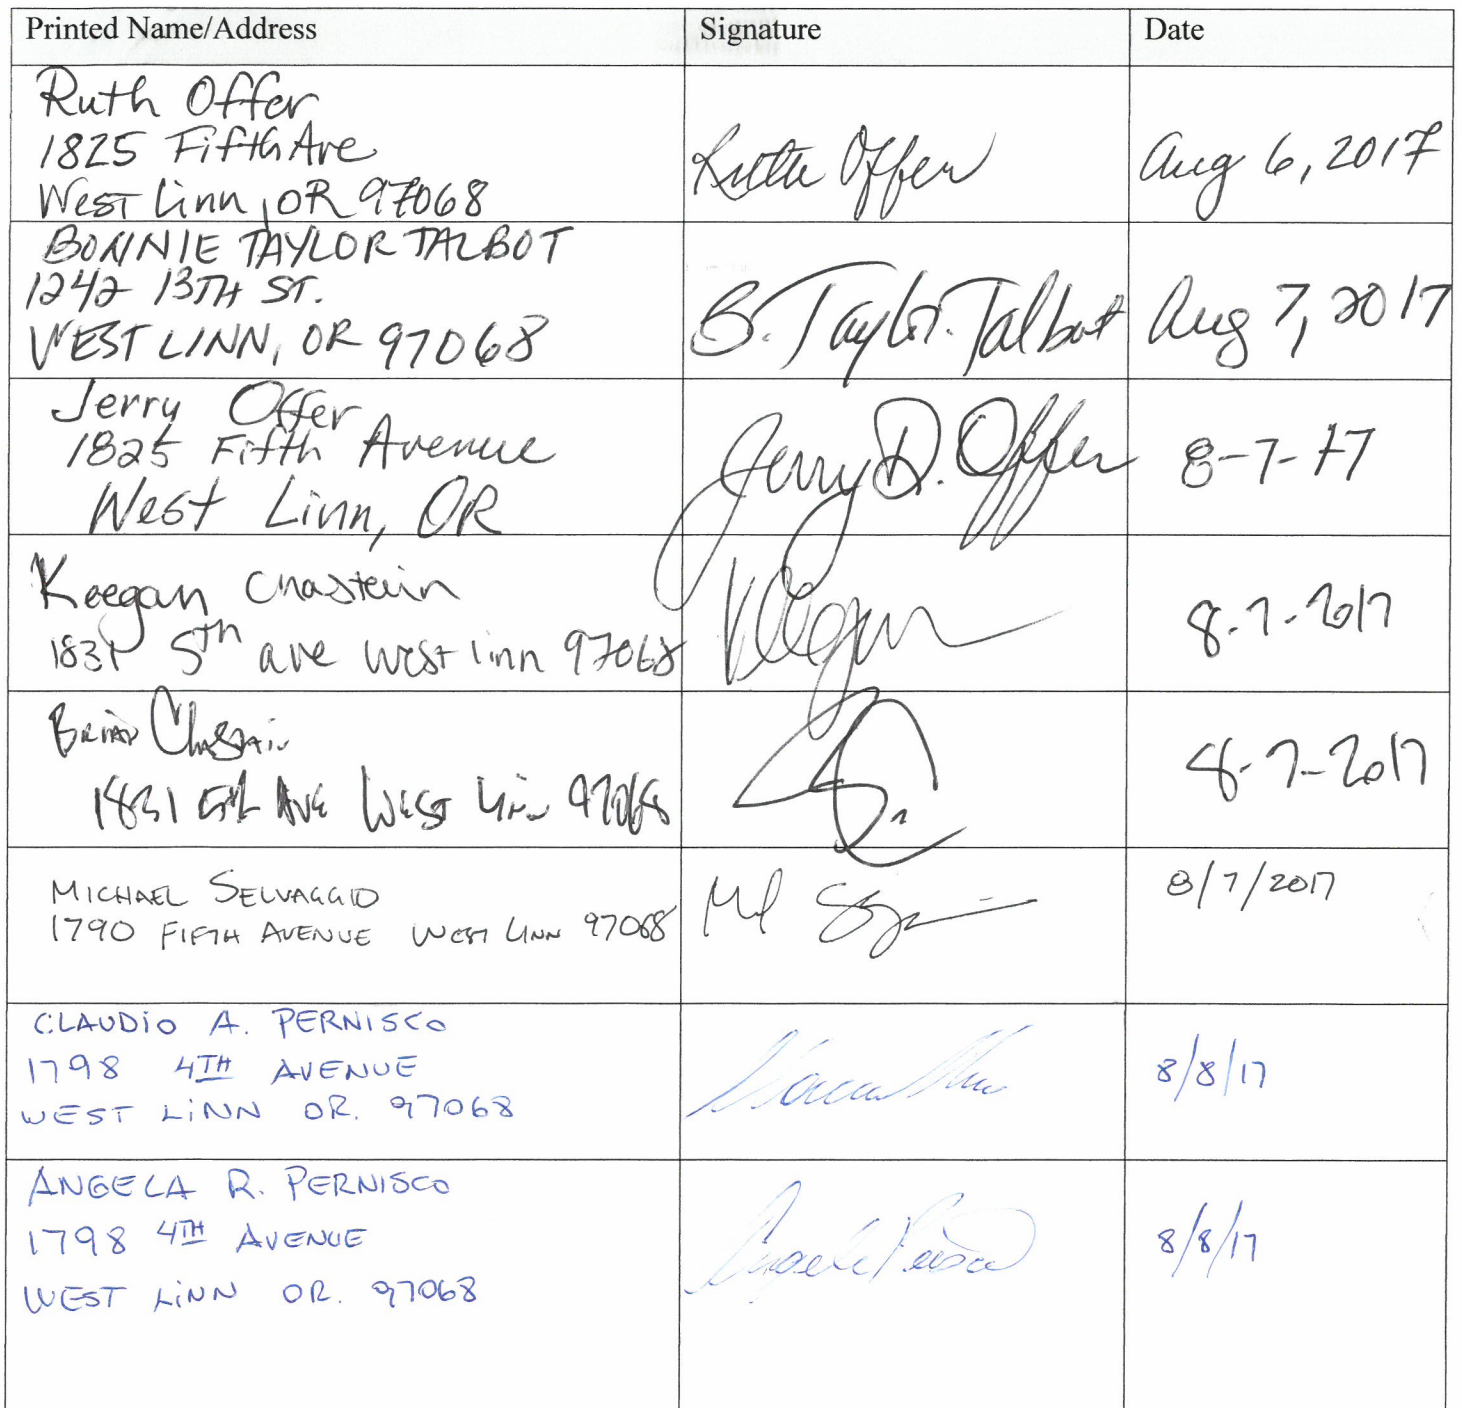 Printed Name/Address Signature Date
Ruth Offer
1825 Fifth Ave
West Linn, OR 97068
Ruth Offer
Aug 6, 2017
BONNIE TAYLOR TALBOT
1242 13TH ST.
WEST LINN, OR 97068
B. Taylor-Talbot
Aug 7, 2017
Jerry Offer
1825 Fifth Avenue
West Linn, OR
Jerry D. Offer
8-7-17
Keegan Chastain
1831 5th ave west linn 97068
Keegan
8-7-2017
Brian Chastain
1831 5th Ave West Linn 97068
8-7-2017
MICHAEL SELVAGGIO
1790 FIFTH AVENUE WEST LINN 97068
8/7/2017
CLAUDIO A. PERNISCO
1798 4TH AVENUE
WEST LINN OR. 97068
8/8/17
ANGELA R. PERNISCO
1798 4TH AVENUE
WEST LINN OR. 97068
Angela Pernisco
8/8/17